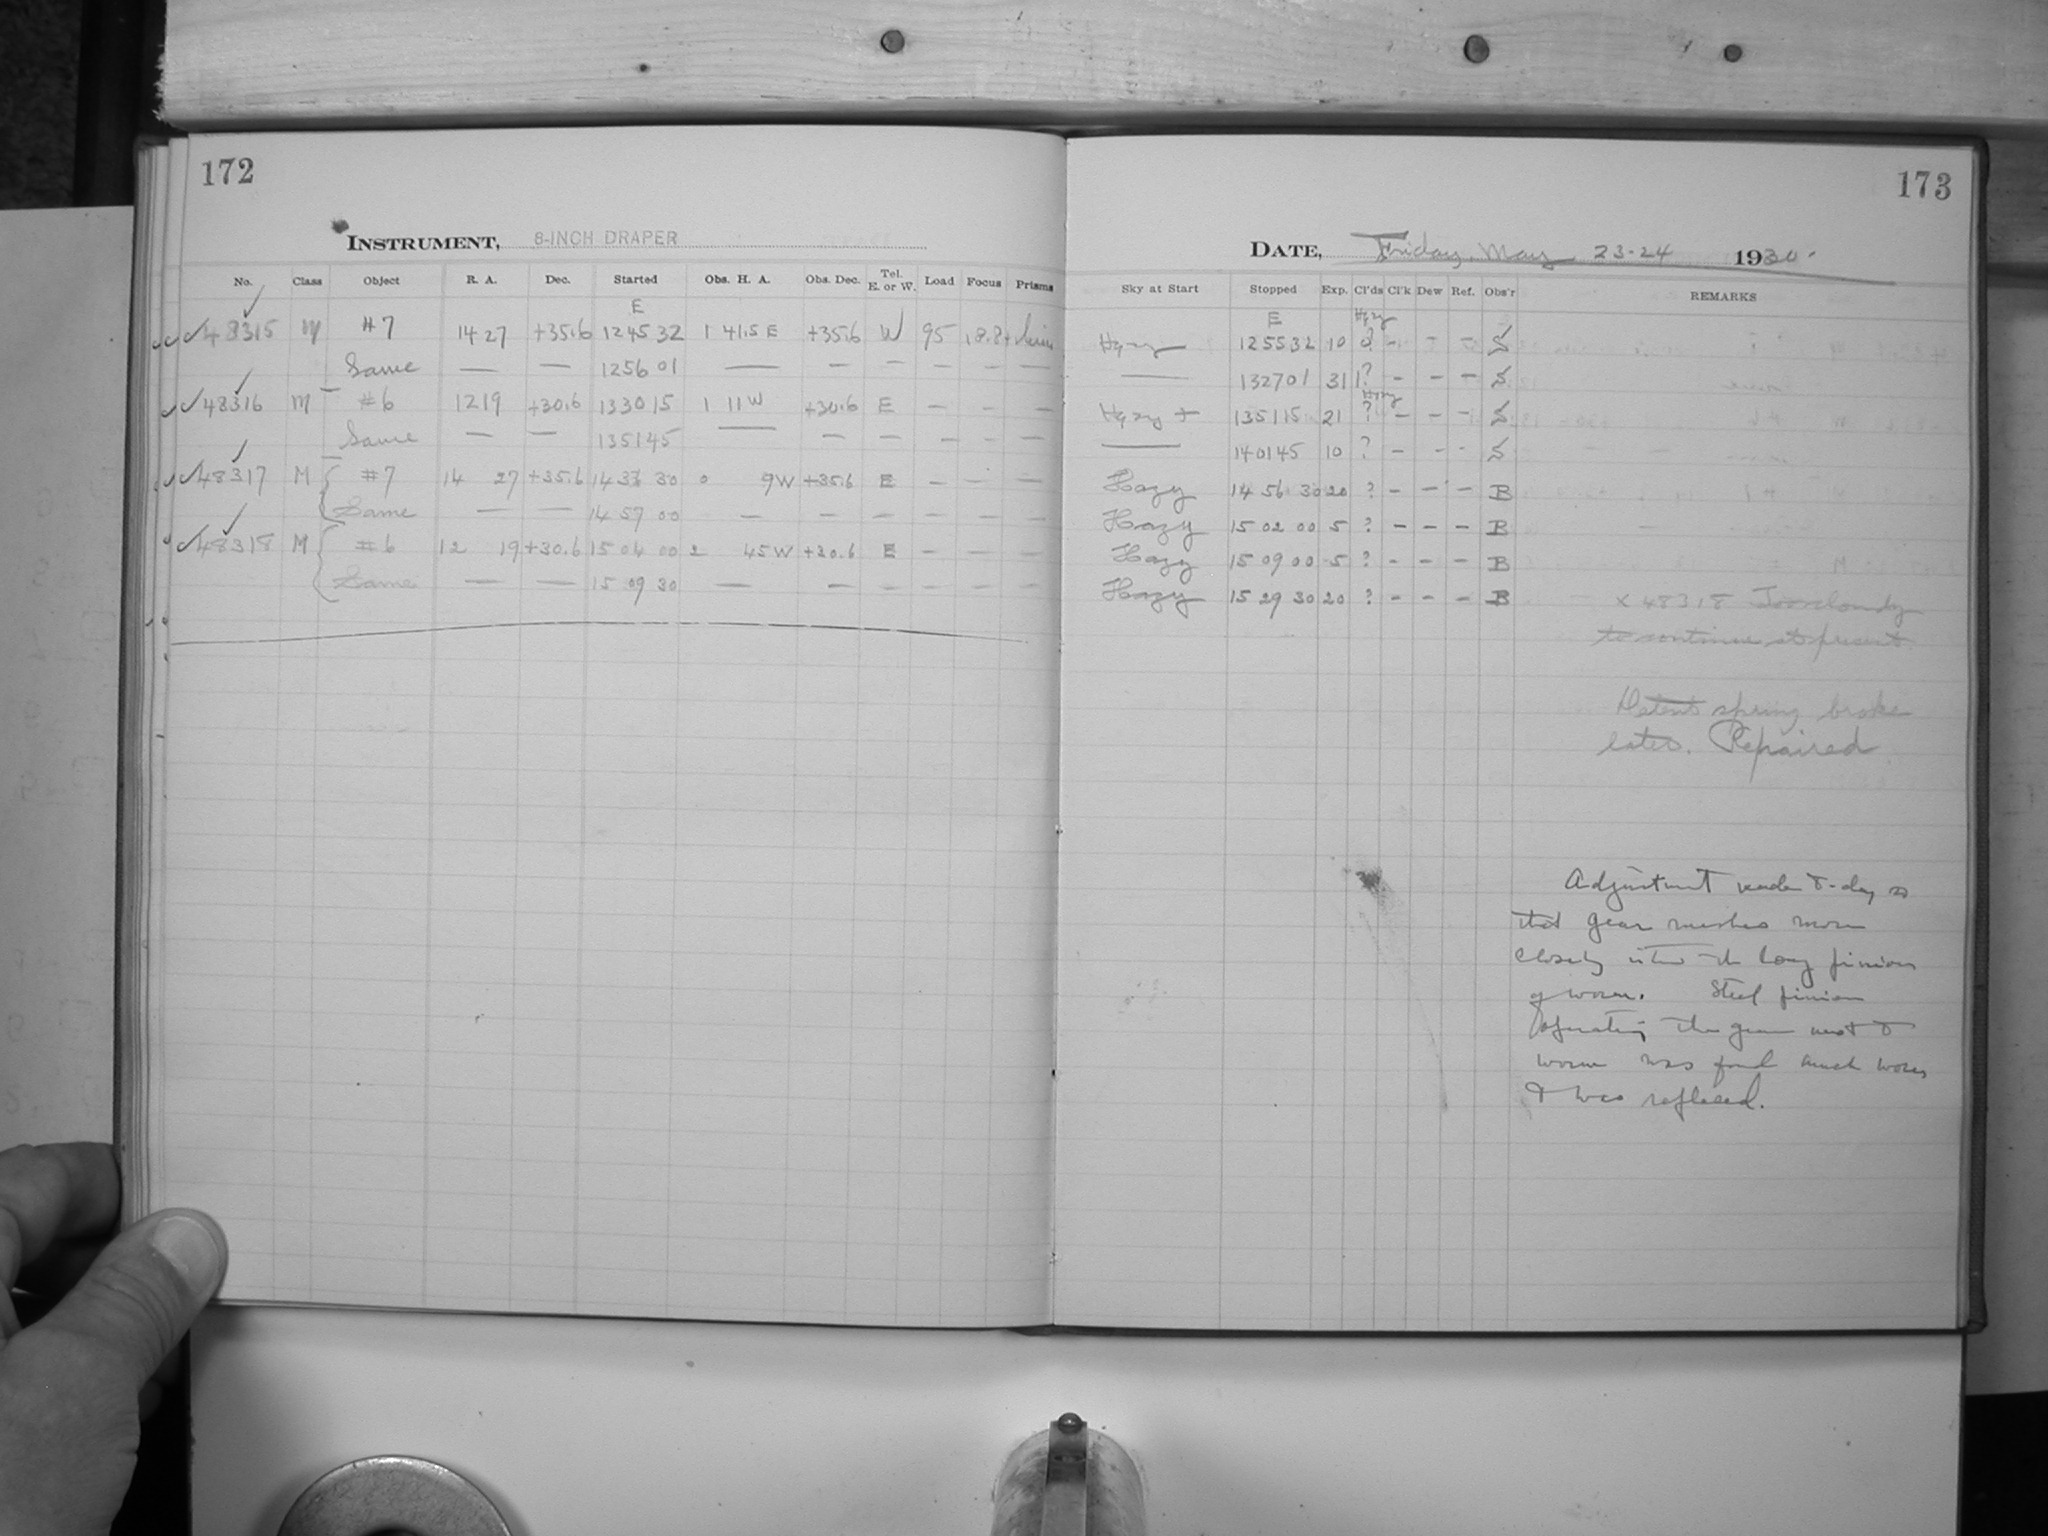 172
INSTRUMENT, 8-INCH DRAPER
No. Class Object R. A. Dec. Started Obs. H. A. Obs. Dec. Tel. E. or W. Load Focus Prisms
E
48315 M #7 14 27 +35.6 12 45 32 1 41.5 E +35.6 W 95
Same — — 12 56 01 — — — — — —
48316 M #6 12 19 +30.6 13 30 15 1 11 W +30.6 E — — —
Same — — 13 51 45 — — — — — —
48317 M #7 14 27 +35.6 30 0 9 W +35.6 E — — —
Same — — 14 57 00 — — — — — —
48318 M #6 12 19 +30.6 15 04 00 2 45 W +30.6 E — — —
Same — — 15 09 30 — — — — — —
173
DATE, Friday, May 23-24 1930.
Sky at Start Stopped Exp. Cl'ds Cl'k Dew Ref. Obs'r REMARKS
E Hazy
Hazy 12 55 32 10 ? - - - S
— 13 27 01 31 ? - - - S
Hazy
Hazy + 13 51 15 21 ? - - - S
— 14 01 45 10 ? - - - S
Hazy 14 56 30 20 ? - - - B
Hazy 15 02 00 5 ? - - - B
Hazy 15 09 00 5 ? - - - B
Hazy 15 29 30 20 ? - - - B
x 48318 Too cloudy
to continue at present.
Detent spring broke
later. Repaired
Adjustment made to-day so
that gear meshes more
closely into the long pinion
of worm. Steel pinion
operating the gear next to
worm was found much worn
& was replaced.